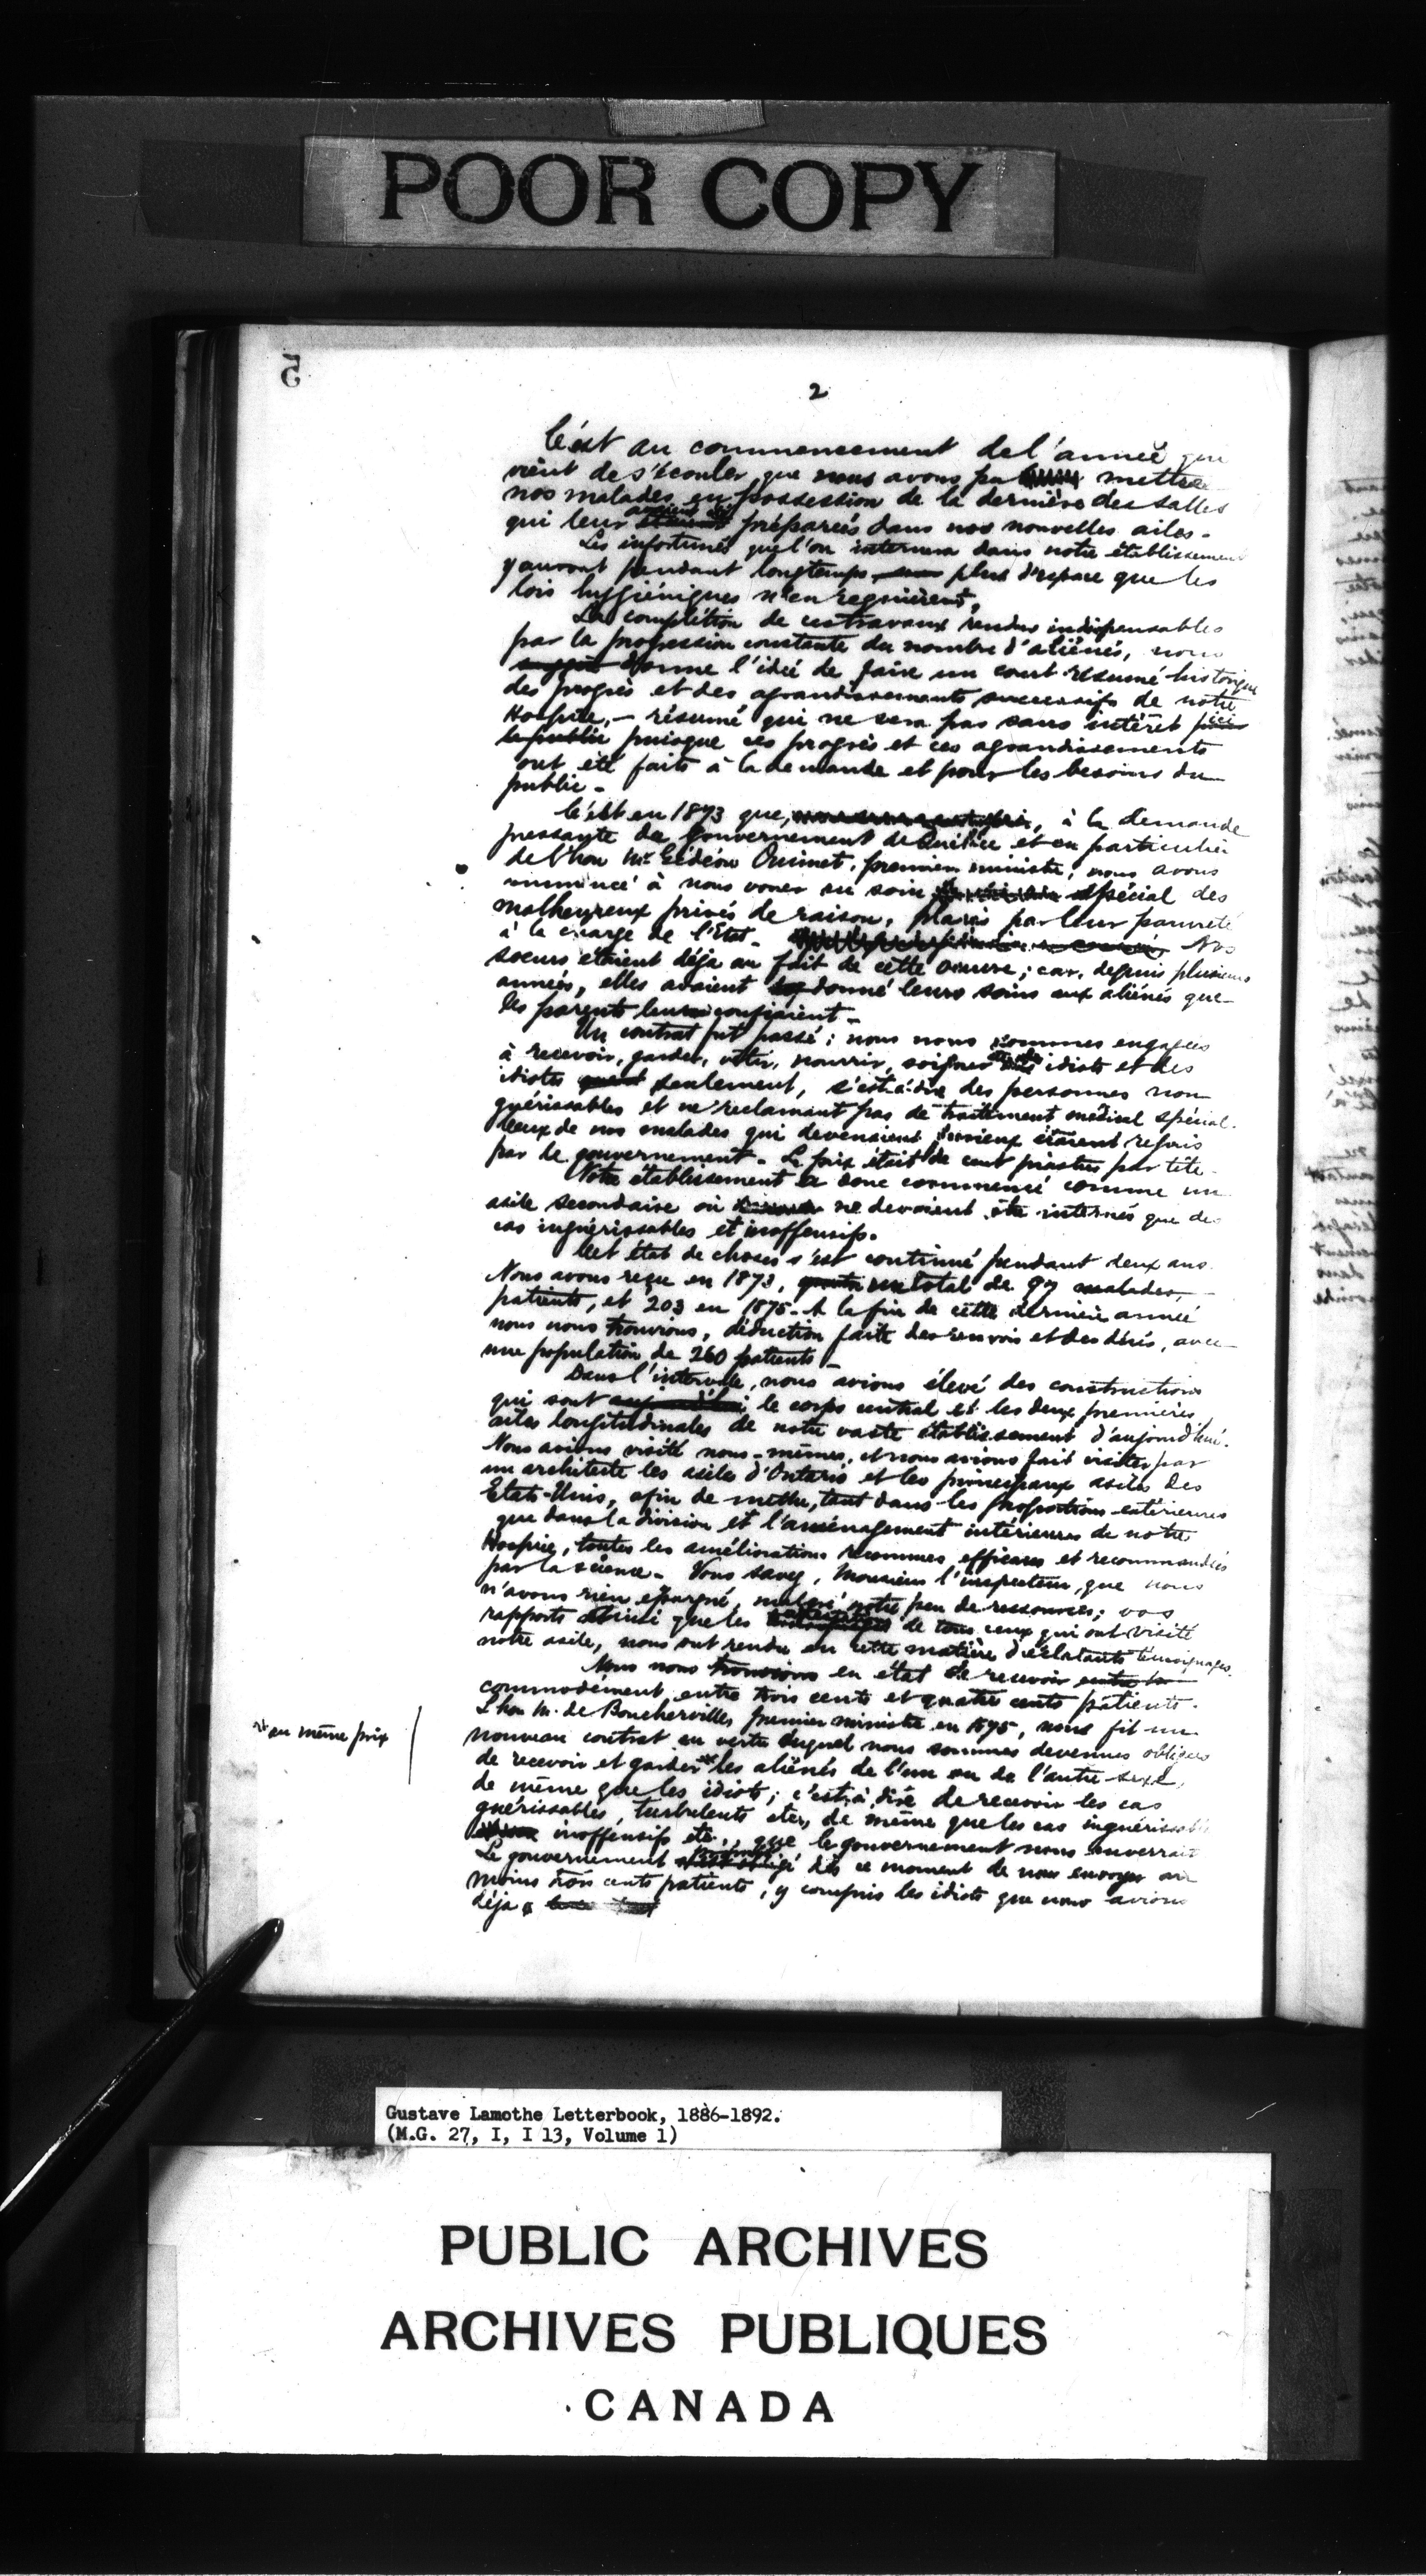 POOR COPY
5
2
C'est au commencement de l'année que
vient de s'écouler que nous avons pu mettre
nos malades en possession de la dernière des salles
qui leur avaient été préparées dans nos nouvelles ailes.
Les infortunés que l'on internera dans notre établissement
y auront pendant longtemps plus d'espace que les
lois hygiéniques n'en requièrent.
La complétion de ces travaux rendus indispensables
par la progression constante du nombre d'aliénés, nous
donne l'idée de faire un court résumé historique
des progrès et des agrandissements successifs de notre
Hospice, — résumé qui ne sera pas sans intérêt
le public puisque ces progrès et ces agrandissements
ont été faits à la demande et pour les besoins du
public -
C'est en 1873 que, à la demande
pressante du gouvernement de Québec et en particulier
de l'hon Mr. Gédéon Ouimet, premier ministre, nous avons
commencé à nous vouer au soin spécial des
malheureux privés de raison, placés par leur pauvreté
à la charge de l'Etat - Nos
soeurs étaient déja au fait de cette oeuvre; car, depuis plusieurs
années, elles avaient donné leurs soins aux aliénés que
les parents leur confiaient -
Un contrat fut passé: nous nous sommes engagées
à recevoir, garder, vêtir, nourrir, soigner des idiots et des
idiotes seulement, c'est-à-dire des personnes non
guérissables et ne réclamant pas de traitement médical spécial.
Ceux de nos malades qui devenaient furieux étaient repris
par le gouvernement - Le prix était de cent piastres par tête -
Notre établissement a donc commencé comme un
asile secondaire où ne devaient être internés que des
cas inguérissables et inoffensifs.
Cet état de choses s'est continué pendant deux ans.
Nous avons reçu en 1873, un total de 97 malades,
patients, et 203 en 1875 - A la fin de cette dernière année
nous nous trouvions, déduction faite des renvois et des décès, avec
une population de 260 patients -
Dans l'intervalle, nous avions élevé des constructions
qui sont aujourd'hui le corps central et les deux premières
ailes longitudinales de notre vaste établissement d'aujourd'hui.
Nous avions visité nous-mêmes, et nous avions fait visiter par
un architecte les asiles d'Ontario et les principaux asiles des
Etats-Unis, afin de mettre, tant dans les proportions extérieures
que dans la division et l'aménagement intérieures de notre
Hospice, toutes les améliorations reconnues efficaces et recommandées
par la science - Vous savez, Monsieur l'inspecteur, que nous
n'avons rien épargné, malgré notre peu de ressources; vos
rapports ainsi que les de tous ceux qui ont visité
notre asile, nous ont rendu en cette matière d'éclatants témoignages.
Nous nous trouvions en état de recevoir
commodément entre trois cents et quatre cents patients.
L'hon M. de Boucherville, premier ministre en 1875, nous fit un
nouveau contrat en vertu duquel nous sommes devenues obligées
de recevoir et garder les aliénés de l'un ou de l'autre sexe,
et au même prix
de même que les idiots; c'est à dire de recevoir les cas
guérissables, turbulents etc, de même que les cas inguérissables
inoffensifs etc., que le gouvernement nous enverrait
Le gouvernement dès ce moment de nous envoyer au
moins trois cents patients, y compris les idiots que nous avions
déja
Gustave Lamothe Letterbook, 1886-1892.
(M.G. 27, I, I 13, Volume 1)
PUBLIC ARCHIVES
ARCHIVES PUBLIQUES
CANADA